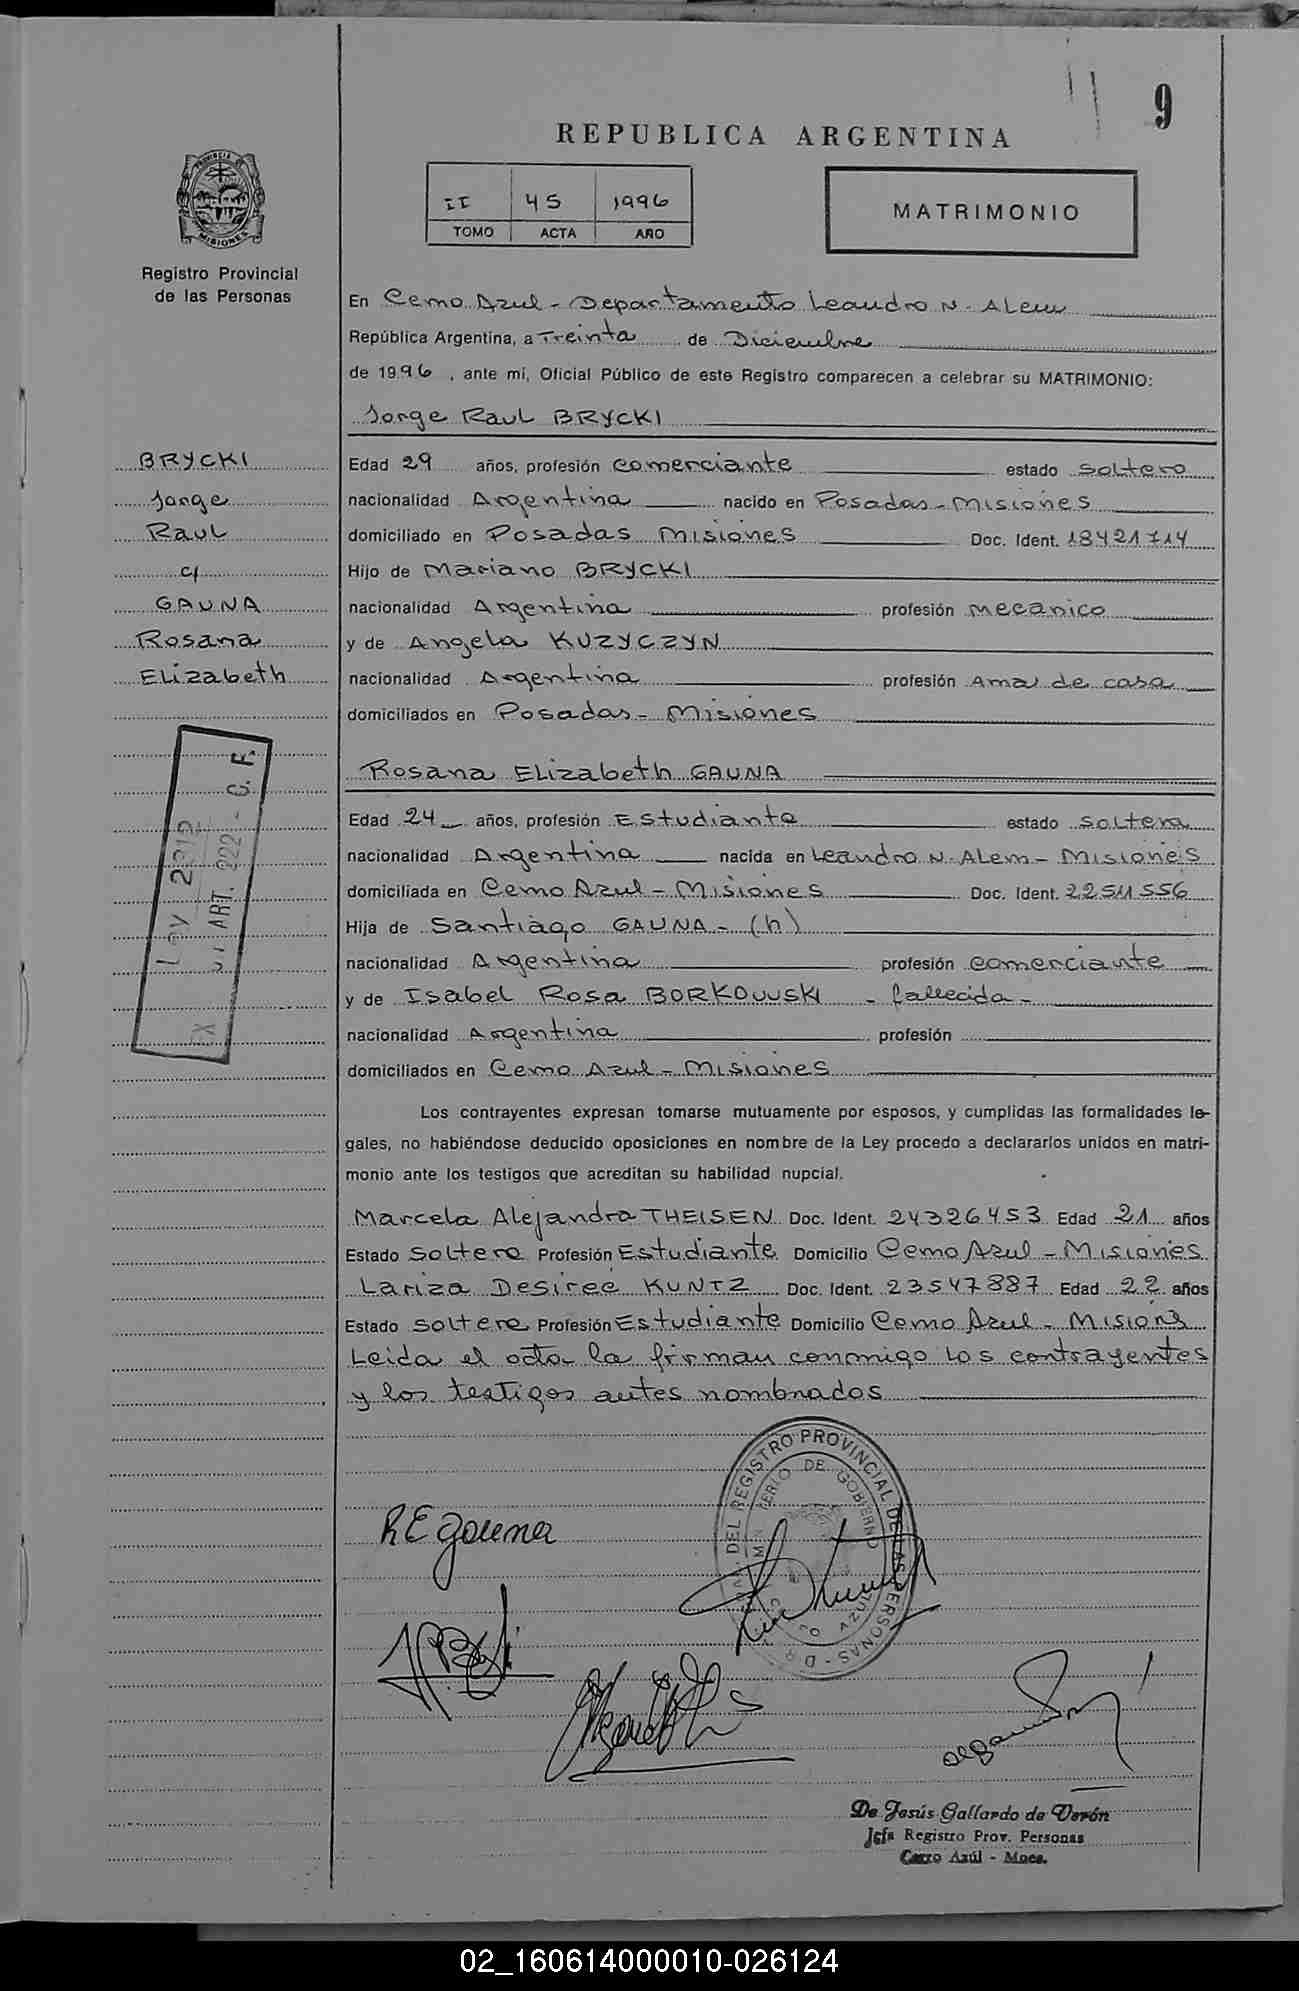 9
REPUBLICA ARGENTINA
II 45 1996
TOMO ACTA AÑO
MATRIMONIO
PROVINCIA DE
MISIONES
Registro Provincial
de las Personas
En Cerro Azul - Departamento Leandro N. Alem
República Argentina, a Treinta de Diciembre
de 1996, ante mí, Oficial Público de este Registro comparecen a celebrar su MATRIMONIO:
Jorge Raul BRYCKI
BRYCKI
Jorge
Raul
c/
GAUNA
Rosana
Elizabeth
Edad 29 años, profesión comerciante estado soltero
nacionalidad Argentina nacido en Posadas - Misiones
domiciliado en Posadas Misiones Doc. Ident. 18421714
Hijo de Mariano BRYCKI
nacionalidad Argentina profesión mecanico
y de Angela KUZYCZYN
nacionalidad Argentina profesión Ama de casa
domiciliados en Posadas - Misiones
Rosana Elizabeth GAUNA
Ley 2312
ART. 222 - C. F.
EX
Edad 24 años, profesión Estudiante estado soltera
nacionalidad Argentina nacida en Leandro N. Alem - Misiones
domiciliada en Cerro Azul - Misiones Doc. Ident.
Hija de Santiago GAUNA - (h)
nacionalidad Argentina profesión comerciante
y de Isabel Rosa BORKOWSKI - fallecida -
nacionalidad Argentina profesión
domiciliados en Cerro Azul - Misiones
Los contrayentes expresan tomarse mutuamente por esposos, y cumplidas las formalidades le-
gales, no habiéndose deducido oposiciones en nombre de la Ley procedo a declararlos unidos en matri-
monio ante los testigos que acreditan su habilidad nupcial.
Marcela Alejandra THEISEN Doc. Ident. 24326453 Edad 21 años
Estado soltera Profesión Estudiante Domicilio Cerro Azul - Misiones
Lariza Desireé KUNTZ Doc. Ident. 23547887 Edad 22 años
Estado soltera Profesión Estudiante Domicilio Cerro Azul - Misiones
Leida el acta la firman conmigo los contrayentes
y los testigos antes nombrados
DEL REGISTRO PROVINCIAL DE LAS PERSONAS - D R
DE GOBIERNO
AZUL
R E Gauna
De Jesús Gallardo de Verón
Jefa Registro Prov. Personas
Cerro Azúl - Mnes.
02_160614000010-026124